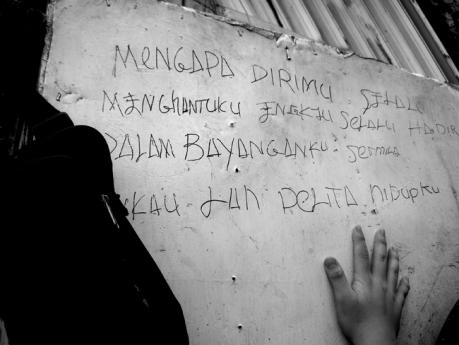 MENGAPA DIRIMU SELALU
MENGHANTUKU ENGKAU SELALU HADIR
DALAM BAYANGANKU. SEMOGA
KAU LAH PELITA HIDUPKU